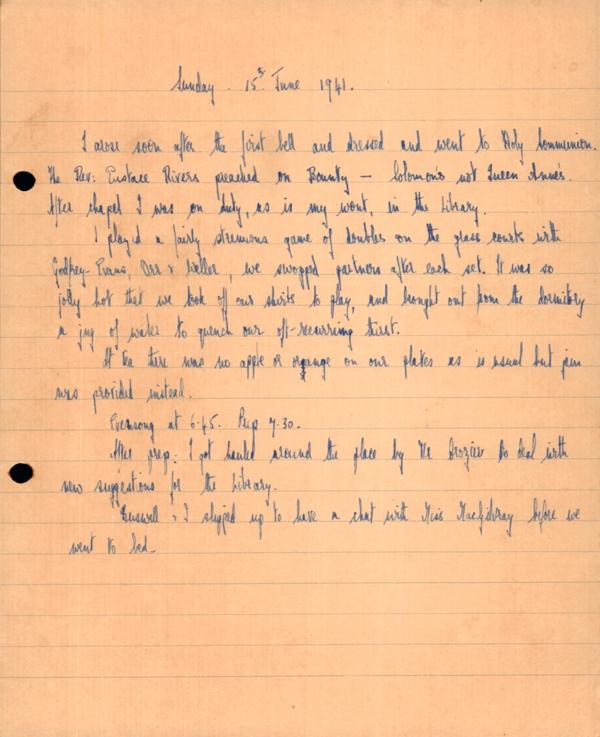 Sunday. 15th June 1941.
I arose soon after the first bell and dressed and went to Holy Communion.
The Rev: Eustace Rivers preached on Bounty — Solomon's not Queen Anne's.
After chapel I was on duty, as is my wont, in the Library.
I played a fairly strenuous game of doubles on the grass courts with
Godfrey-Evans, Orr & Weller, we swopped partners after each set. It was so
jolly hot that we took off our shirts to play, and brought out from the dormitory
a jug of water to quench our oft-recurring thirst.
At tea there was no apple or orange on our plates as is usual but jam
was provided instead.
Evensong at 6.45. Prep 7.30.
After prep: I got hauled around the place by Mr Crozier to deal with
new suggestions for the Library.
& I slipped up to have a chat with Miss MacGilivray before we
went to bed.